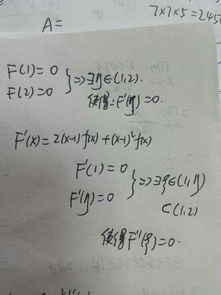 A=
7×7×5=245
F(1)=0
F(2)=0 } ⇒ ∃η∈(1,2).
使得F'(η)=0.
F'(x)=2(x-1)f(x)+(x-1)²f'(x)
F'(1)=0
F'(η)=0 } ⇒ ∃ξ∈(1,η)
⊂(1,2)
使得F''(ξ)=0.